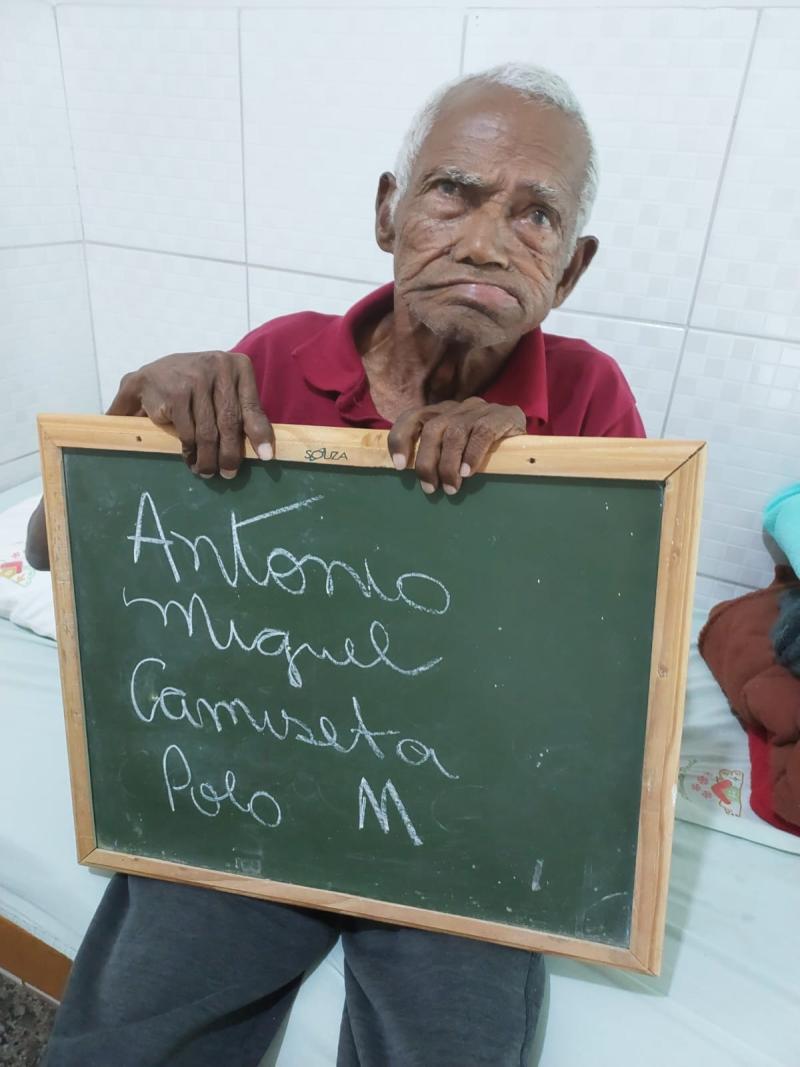 SOUZA
Antonio
Miguel
Camiseta
Polo M